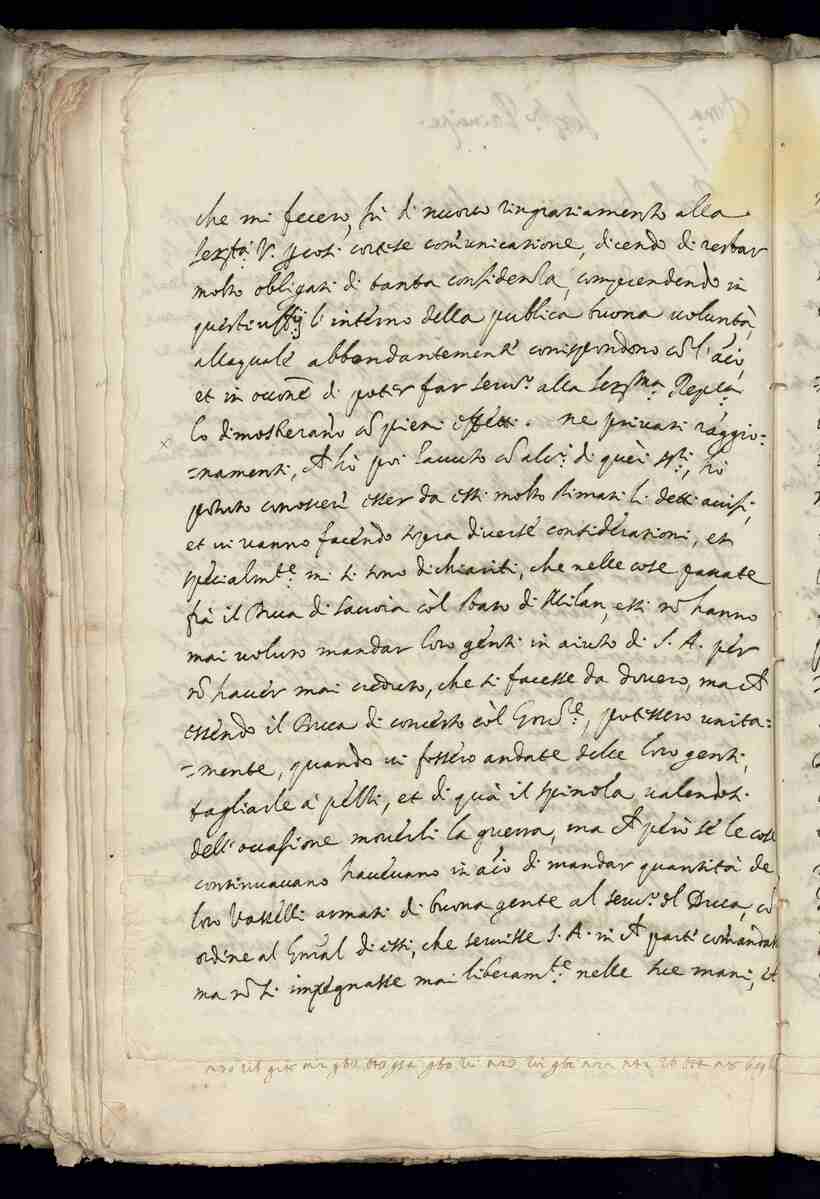 che mi fecero, fù di nuovo ringratiamento alla
Ser.tà V. p così cortese com̃unicatione, dicendo di restar
molto obligati di tanta confidenza, comprendendo in
questi ufficij l'interno della publica buona volontà,
alla quale abbondantemente corrispondono cõ l'aĩo,
et in occñe di poter far serv.o alla Ser.ma Repca.
lo dimostrerano cõ pieni effetti. ne privati raggio=
=namenti, ch' hò poi havuto cõ alc.i di quei ss.ri, hò
potuto conoscer esser da essi molto stimati li detti avisi,
et vi vanno facendo sopra diverse considerationi, et
specialmte. mi si sono dichiariti, che nelle cose passate
frà il Duca di Savoia còl stato di Milan, essi nõ hanno
mai voluto mandar loro genti in aiuto di S. A. per
nõ haver mai creduto, che si facesse da dovero, ma ch'
essendo il Duca di concerto còl Gov.re, potessero unita=
=mente, quando vi fossero andate delle loro genti,
tagliarle à pezzi, et di quà il Spinola valendosi
dell'occasione moverli la guerra, ma ch' però se le cose
continuavano havevano in aĩo di mandar quantità de
loro Vasselli armati di buona gente al serv.o del Duca, cõ
ordine al Gñral di essi, che servisse S. A. in ch' parte comandasse
ma nõ si impegnasse mai liberamte. nelle sue mani, et